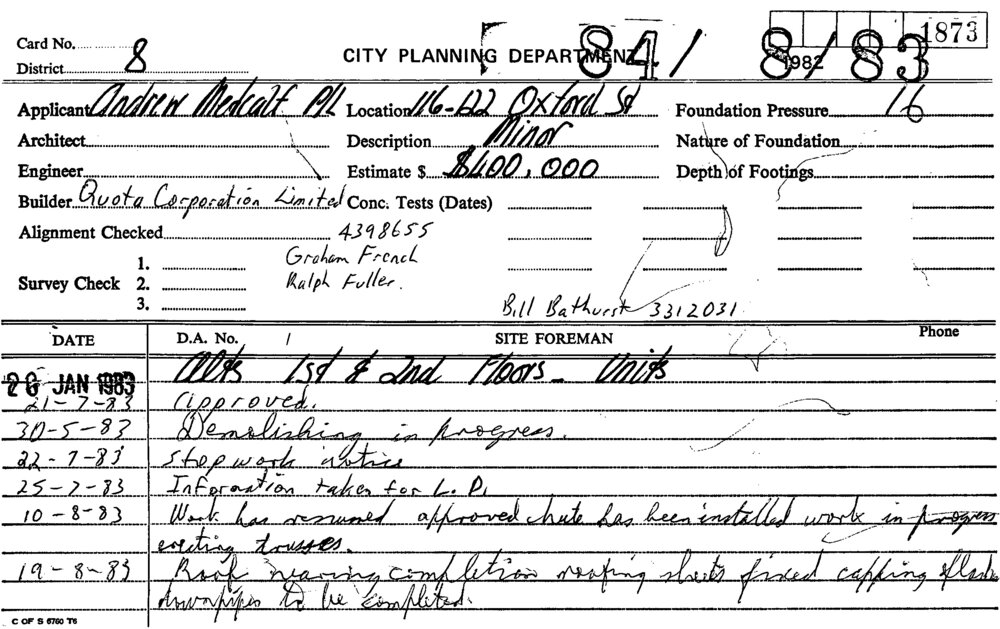 1873
Card No. 8
CITY PLANNING DEPARTMENT 84/ 8/83
1982
District
Applicant Andrew Medcalf P/L Location 116-122 Oxford St Foundation Pressure 16
Architect Description Minor Nature of Foundation
Engineer Estimate $ $400,000 Depth of Footings
Builder Quota Corporation Limited Conc. Tests (Dates)
Alignment Checked 4398655
Graham French
1.
Survey Check 2. Ralph Fuller.
3. Bill Bathurst 3312031
DATE D.A. No. / SITE FOREMAN Phone
Alts 1st & 2nd Floors - Units
20 JAN 1983
21-7-83 Approved.
30-5-83 Demolishing in progress.
22-7-83 Stop work notice
25-7-83 Information taken for L.P.
10-8-83 Work has resumed approved chute has been installed work in progress
erecting trusses.
19-8-83 Roof nearing completion roofing sheets fixed capping
downpipes to be completed.
C OF S 6760 T6